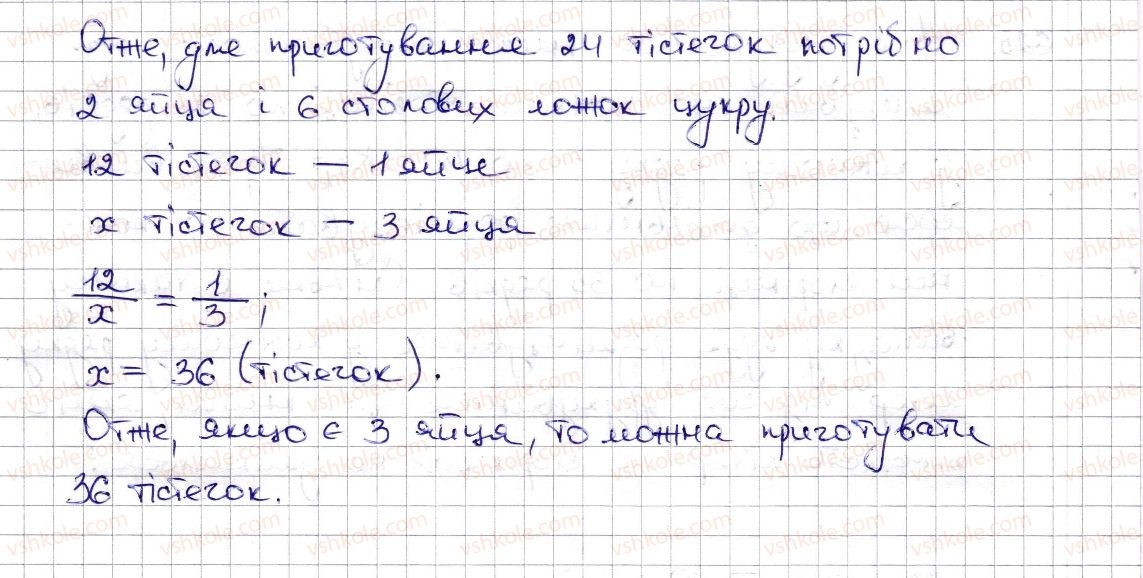 Отже, для приготування 24 тістечок потрібно
2 яйця і 6 столових ложок цукру.
12 тістечок — 1 яйце
x тістечок — 3 яйця
12/x = 1/3;
x = 36 (тістечок).
Отже, якщо є 3 яйця, то можна приготувати
36 тістечок.
vshkole.com